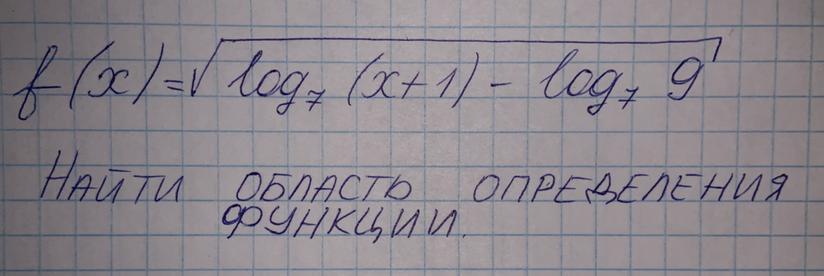 f(x)=√(log₇ (x+1) - log₇ 9)
НАЙТИ ОБЛАСТЬ ОПРЕДЕЛЕНИЯ
ФУНКЦИИ.